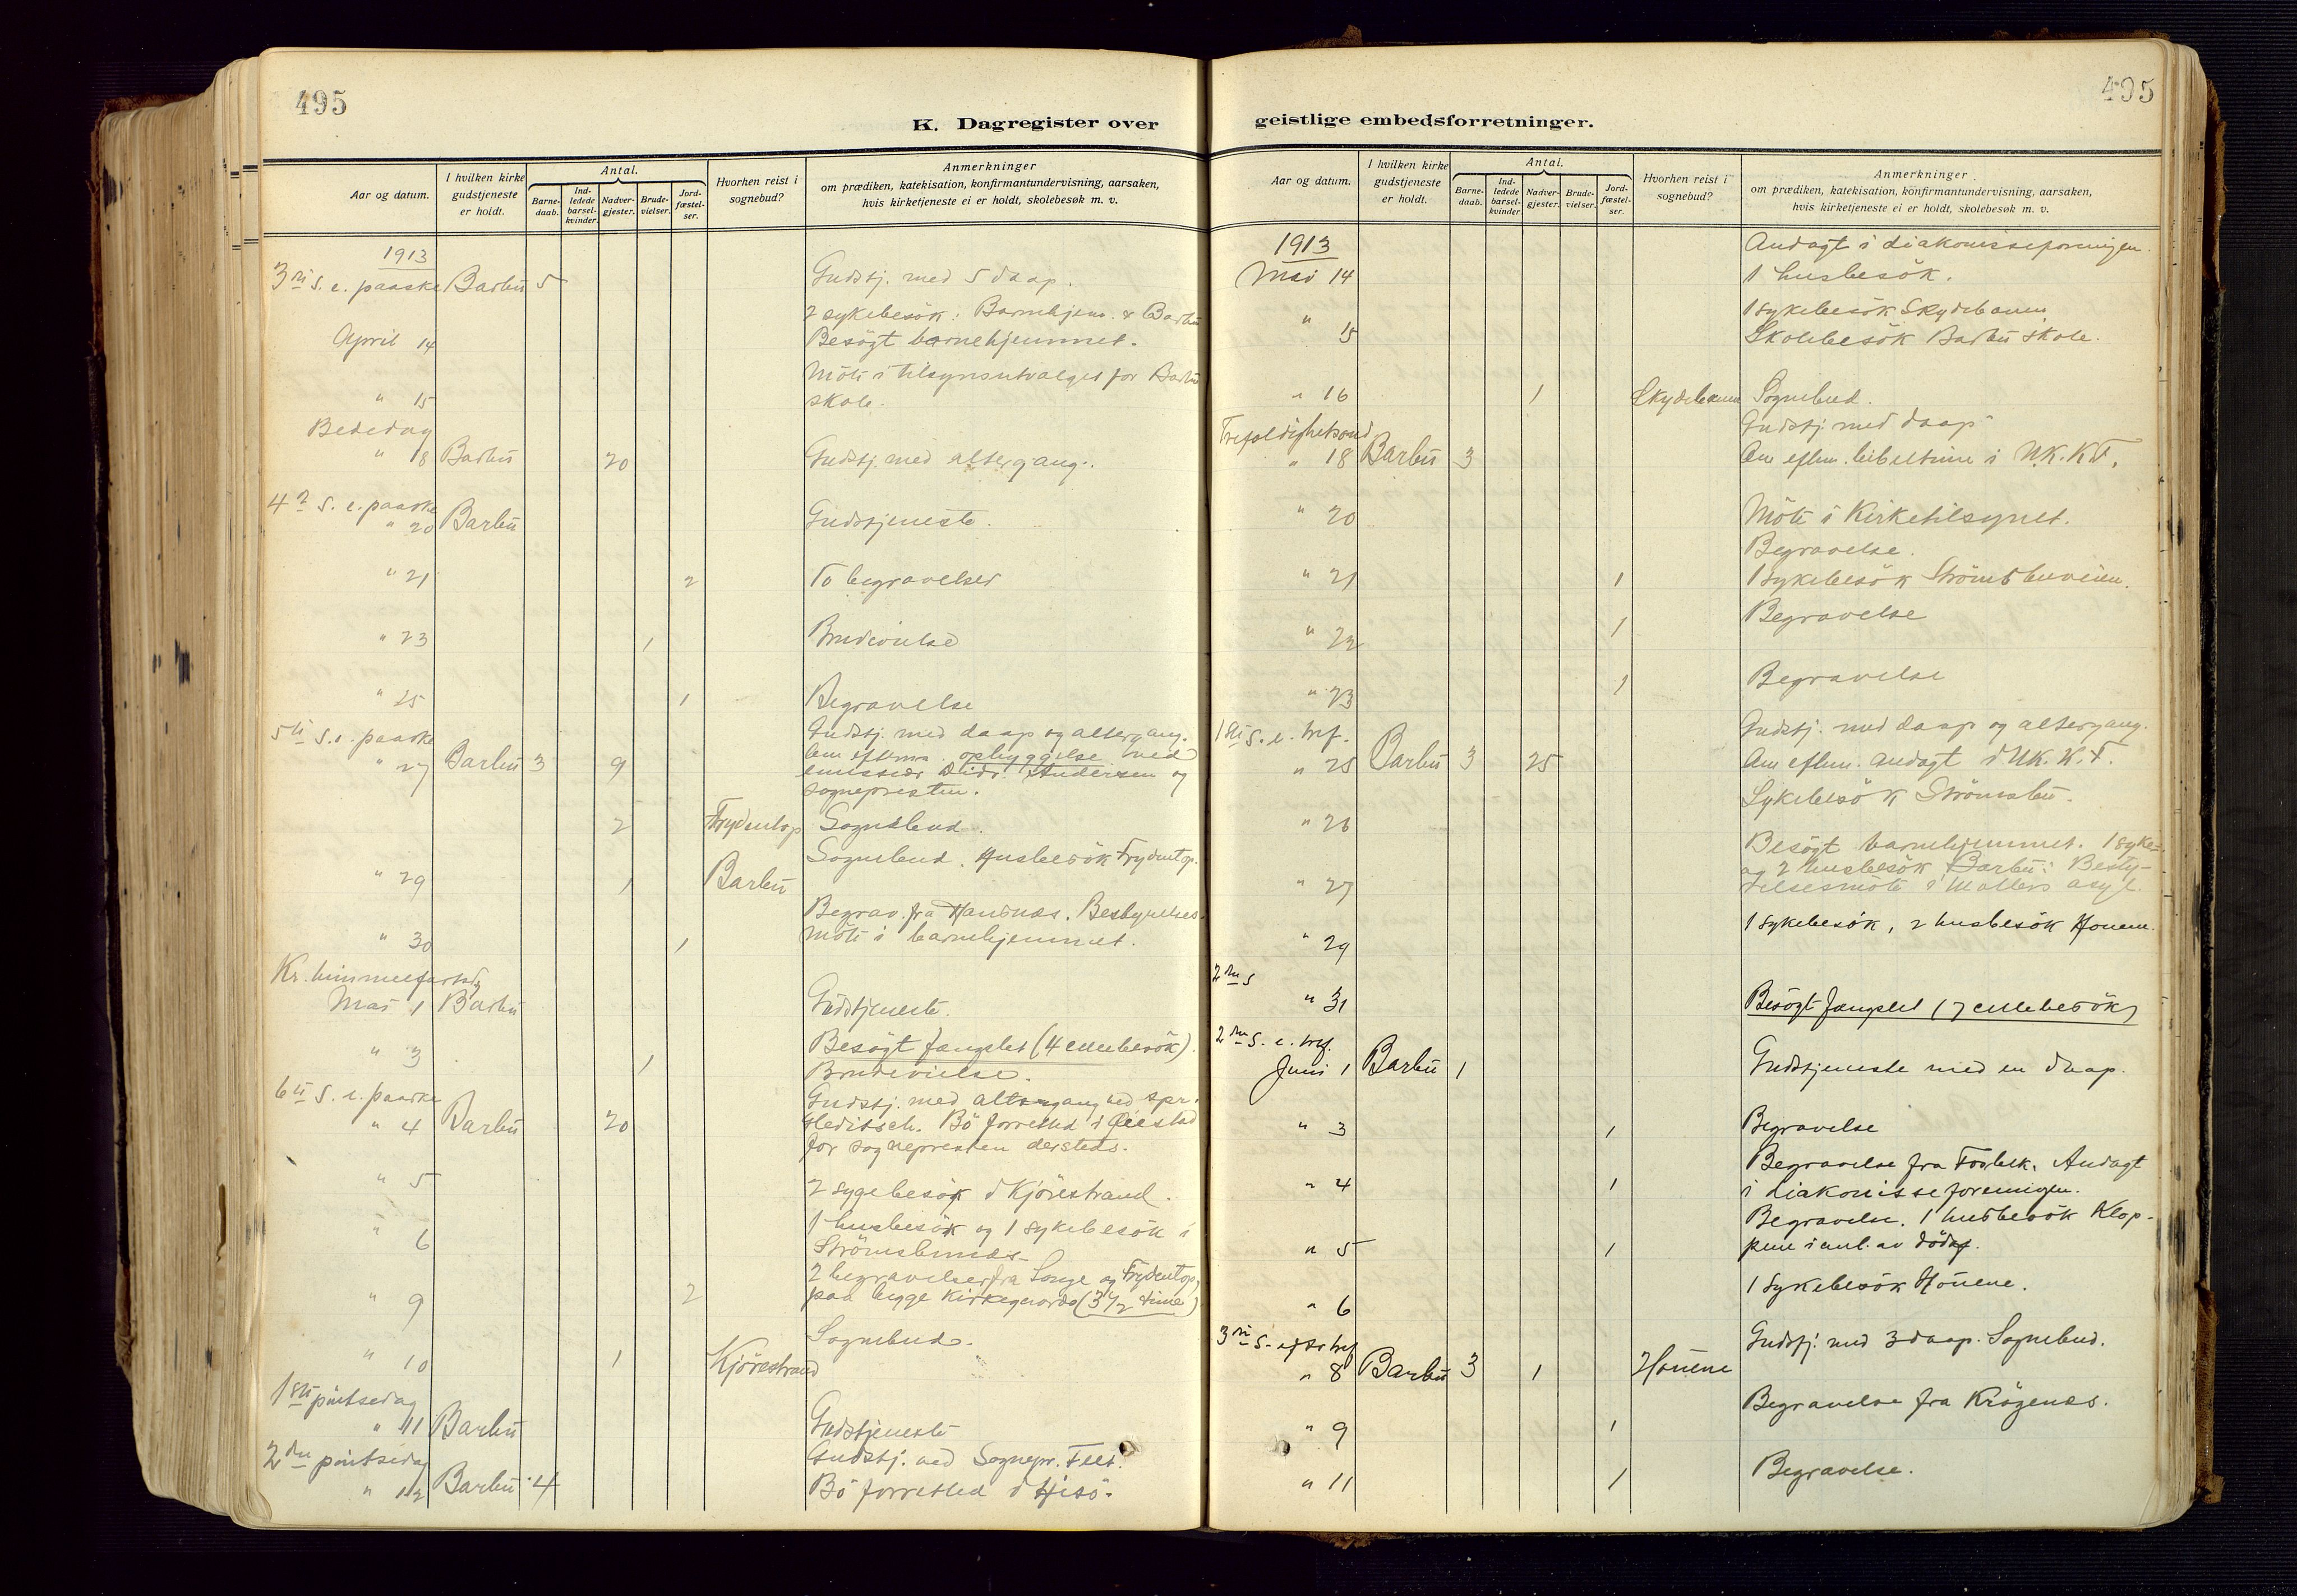 495
K. Dagregister over
Aar og datum.
I hvilken kirke gudstjeneste er holdt.
Antal.
Barne-daab.
Ind-ledede barsel-kvinder.
Nadver-gjester.
Brude-vielser.
Jord-fæstel-ser.
Hvorhen reist i sognebud?
Anmerkninger
om prædiken, katekisation, konfirmantundervisning, aarsaken,
hvis kirketjeneste ei er holdt, skolebesøk m. v.
1913
3die S. e. paaske Barbu 5 Gudstj. med 5 daap.
2 sykebesök: Barnehjem. & Barbu
April 14 Besögt barnehjemmet.
Möte i tilsynsutvalget for Barbu
" 15 skole.
Bededag
" 18 Barbu 20 Gudstj. med altergang.
4de S. e. paaske
" 20 Barbu Gudstjeneste.
" 21 2 To begravelser
" 23 1 Brudevielse
" 25 1 Begravelse
5te S. e. paaske Gudstj. med daap og altergang.
" 27 Barbu 3 9 Om efterm. opbyggelse ved
emissær Andersen og
sognepresten.
2 Frydentop Sognebud.
Sognebud. Husbesök Frydentop.
" 29 1 Barbu
Begrav. fra . Bestyrelses-
" 30 1 möte i barnehjemmet.
Kr. himmelfartsdag
Mai 1 Barbu Gudstjeneste.
" 3 1 Besögt fængslet (4 cellebesök).
Brudevielse.
6te S. e. paaske Gudstj. med altergang ved spr.
" 4 Barbu 20 Gleditsch. Bö forretted i Øiestad
for sognepresten dersteds.
" 5 2 sygebesök i Kjörestrand.
1 husbesök og 1 sykebesök i
" 6 Strömsbunes.
2 begravelser fra Longe og Frydentop,
" 9 2 paa begge kirkegaarde (3 1/2 time)
Sognebud.
" 10 1 Kjörestrand
1ste pintsedag
" 11 Barbu Gudstjeneste
2den pintsedag Gudstj. ved Sognepr.
" 12 Barbu 4 Bö forretted i Hisö.
495
geistlige embedsforretninger.
Aar og datum.
I hvilken kirke gudstjeneste er holdt.
Antal.
Barne-daab.
Ind-ledede barsel-kvinder.
Nadver-gjester.
Brude-vielser.
Jord-fæstel-ser.
Hvorhen reist i sognebud?
Anmerkninger
om prædiken, katekisation, konfirmantundervisning, aarsaken,
hvis kirketjeneste ei er holdt, skolebesøk m. v.
1913 Andagt i diakonisseforeningen.
Mai 14 1 husbesök.
1 sykebesök Skydebanen.
" 15 Skolebesök Barbu skole.
" 16 1 Skydebanen Sognebud.
Trefoldighetssönd. Gudstj. med daap
" 18 Barbu 3 Om efterm. bibeltime i U.K.K.F.
" 20 Möte i Kirketilsynet.
Begravelse.
" 21 1 1 sykebesök Strömsbuveien.
" 22 1 Begravelse
" 23 1 Begravelse
1ste S. e. tref. Gudstj. med daap og altergang.
" 25 Barbu 3 25 Om efterm. andagt i U.K.K.F.
" 26 Sykebesök Strömsbu.
Besögt barnehjemmet. 1 syke-
og 2 husbesök Barbu. Besty-
" 27 relsesmöte i Möllers asyl.
" 29 1 sykebesök, 2 husbesök Houene.
2den S
" 31 Besögt fængslet (7 cellebesök)
2den S. e. tref.
Juni 1 Barbu 1 Gudstjeneste med en daap.
" 3 1 Begravelse
Begravelse fra Fosbæk. Andagt
" 4 1 i diakonisseforeningen.
Begravelse. 1 husbesök Klop-
" 5 1 pene i anl. av dödsf.
" 6 1 sykebesök Houene.
3die S. efter tref Gudstj. med 3 daap. Sognebud.
" 8 Barbu 3 1 Houene
" 9 1 Begravelse fra Krögenes.
" 11 1 Begravelse.